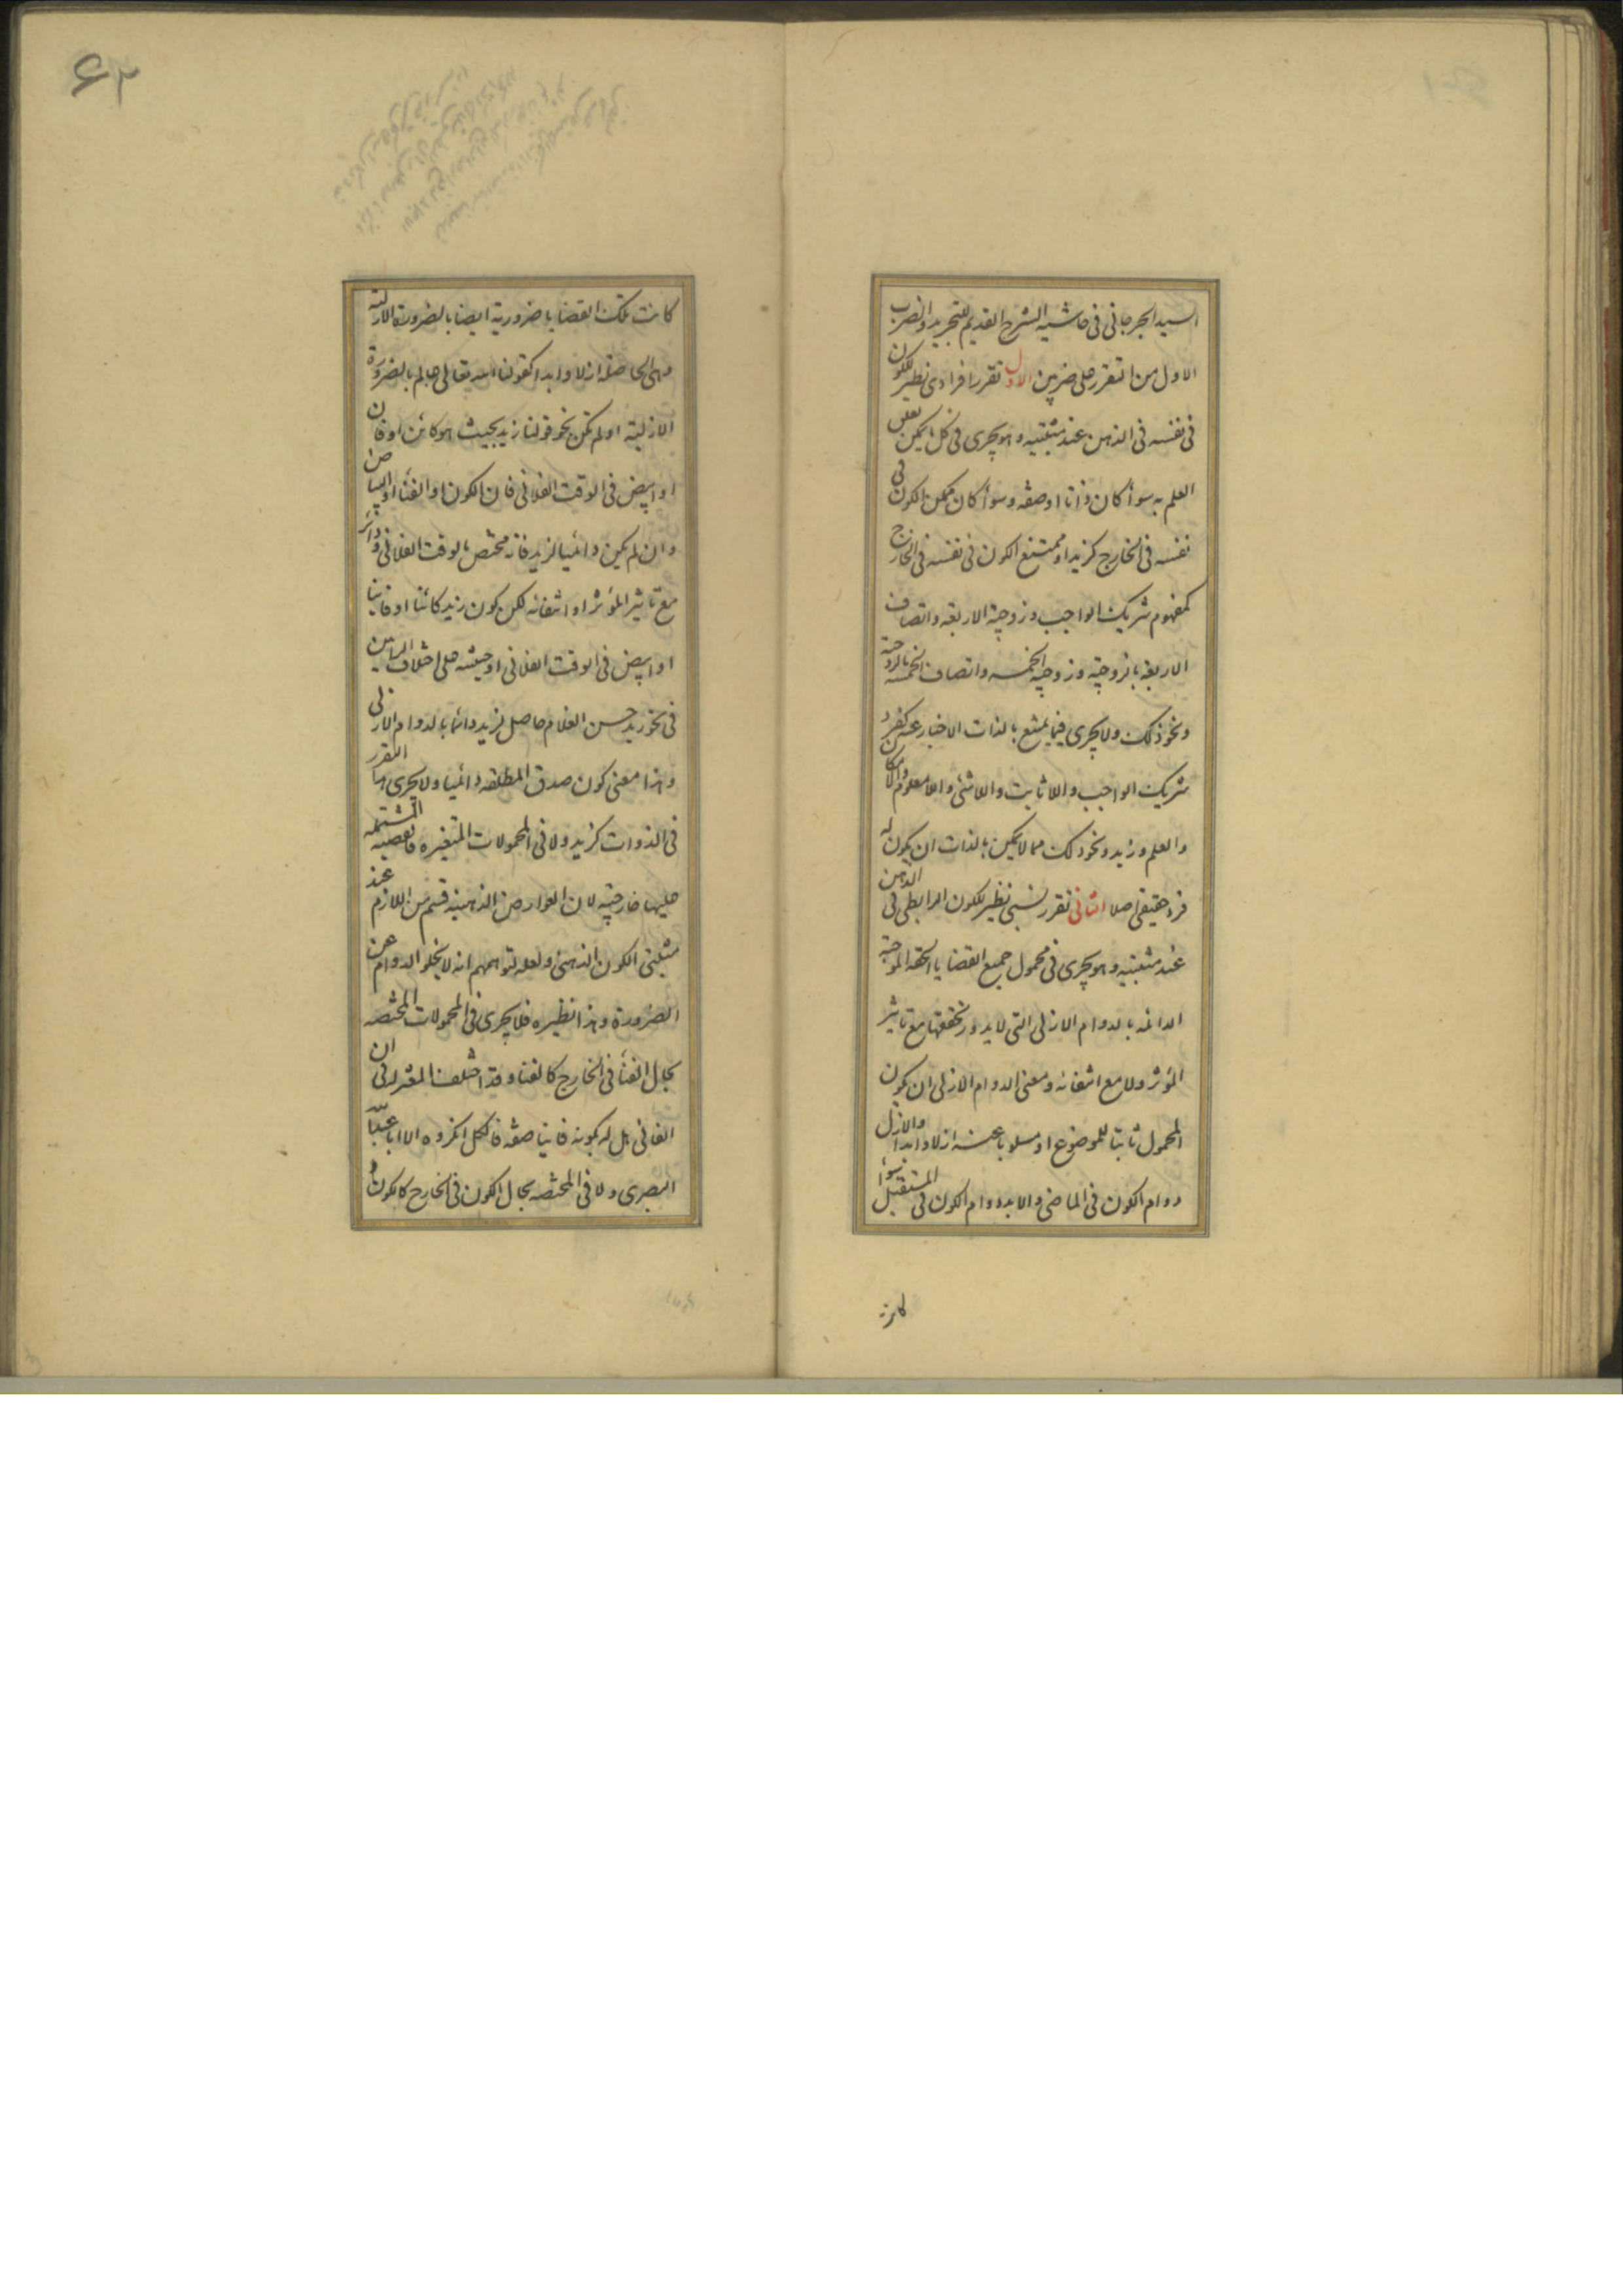 السيد الجرجاني في حاشيه الشرح القديم للتجريد والضرب
الاول من التقرر على ضربين الاول تقرر افرادى نظير للكون
في نفسه في الذهن عند مثبتيه وهو يجرى في كل ما يمكن تعلق
العلم به سواء كان ذاتا او صفه وسواء كان ممكن الكون في
نفسه في الخارج كزيد او ممتنع الكون في نفسه في الخارج
كمفهوم شريك الواجب وزوجية الاربعه واتصاف
الاربعه بالزوجيه وزوجيه الخمسه واتصاف الخمسه بالزوجيه
ونحو ذلك ولا يجرى فيما يمتنع بالذات الاخبار عنه كفرد
شريك الواجب واللاثابت واللاشئ واللامعلوم واللاامكان
والعلم وزيد ونحو ذلك مما لا يمكن بالذات ان يكون له
فرد حقيقي اصلا الثانى تقرر نسبى نظير للكون الرابطى في الذهن
عند مثبتيه وهو يجرى في محمول جميع القضايا الحقه الموجبة
الدائمه بالدوام الازلى التى لا يدور تحققها مع تاثير
المؤثر ولا مع انتفائه ومعنى الدوام الازلى ان يكون
المحمول ثابتا للموضوع او مسلوبا عنه ازلا وابدا والازل
دوام الكون في الماضى والابد دوام الكون في المستقبل سواء
كانت
٦٢
كانت تلك القضايا ضرورية ايضا بالضرورة الازلية
وهى الحاصله ازلا وابدا كقولنا الله تعالى عالم بالضرورة
الازلية او لم تكن نحو قولنا زيد بحيث هو كائن او فان
او ابيض في الوقت الفلانى فان الكون او الفناء او البياض
وان لم يكن دائميا لزيد فانه مختص بالوقت الفلانى ودائر
مع تاثير المؤثر او انتفائه لكن كون زيد كائنا او فانيا
او ابيض في الوقت الفلانى او حيثيته على اختلاف الرايين
في نحو زيد حسن الغلام حاصل لزيد دائما بالدوام الازلى
وهذا معنى كون صدق المطلقه دائميا ولا يجرى هذا التقرر
في الذوات كزيد ولا في المحمولات المتغيره فالقضيه المشتمله
عليها خارجيه لان العوارض الذهنية قسم من اللازم عند
مثبتى الكون الذهنى ولعله لتوهمهم انه لا يخلو الدوام عن
الضرورة وهذا نظيره فلا يجرى في المحمولات المختصه
بحال الفناء في الخارج كالفناء وقد اختلف المعتزله في ان
الفانى هل له بكونه فانيا صفه فالكل انكروه الا ابا عبد الله
البصرى ولا في المختصه بحال الكون في الخارج كالكون